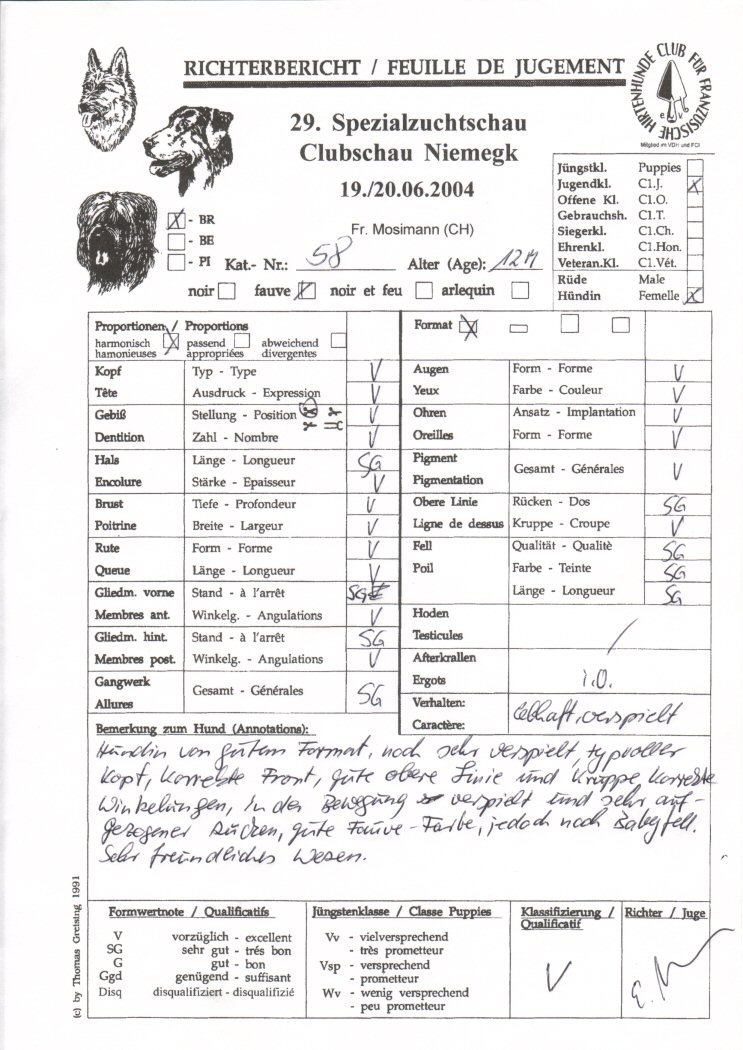 RICHTERBERICHT / FEUILLE DE JUGEMENT
CLUB FÜR FRANZÖSISCHE HIRTENHUNDE e. V.
Mitglied im VDH und FCI
29. Spezialzuchtschau
Clubschau Niemegk
19./20.06.2004
Fr. Mosimann (CH)
X - BR
- BE
- PI
Kat.- Nr.: 58 Alter (Age): 12 M
noir fauve X noir et feu arlequin
Jüngstkl. Puppies
Jugendkl. C1.J. X
Offene Kl. C1.O.
Gebrauchsh. C1.T.
Siegerkl. C1.Ch.
Ehrenkl. C1.Hon.
Veteran.Kl. C1.Vét.
Rüde Male
Hündin Femelle X
Proportionen / Proportions
harmonisch X passend abweichend
hamonieuses appropriées divergentes
Kopf Typ - Type V
Tête Ausdruck - Expression V
Gebiß Stellung - Position V
Dentition Zahl - Nombre V
Hals Länge - Longueur SG
Encolure Stärke - Epaisseur V
Brust Tiefe - Profondeur V
Poitrine Breite - Largeur V
Rute Form - Forme V
Queue Länge - Longueur V
Gliedm. vorne Stand - à l'arrêt SG
Membres ant. Winkelg. - Angulations V
Gliedm. hint. Stand - à l'arrêt SG
Membres post. Winkelg. - Angulations V
Gangwerk
Gesamt - Générales SG
Allures
Format X
Augen Form - Forme V
Yeux Farbe - Couleur V
Ohren Ansatz - Implantation V
Oreilles Form - Forme V
Pigment
Gesamt - Générales V
Pigmentation
Obere Linie Rücken - Dos SG
Ligne de dessus Kruppe - Croupe V
Fell Qualität - Qualitè SG
Poil Farbe - Teinte SG
Länge - Longueur SG
Hoden
Testicules /
Afterkrallen
Ergots i.O.
Verhalten:
Caractère: lebhaft, verspielt
Bemerkung zum Hund (Annotations):
Hündin von gutem Format, noch sehr verspielt, typvoller
Kopf, korrekte Front, gute obere Linie und Kruppe, korrekte
Winkelungen, in der Bewegung verspielt und sehr auf-
gezogener Rücken, gute Fauve-Farbe, jedoch noch Babyfell.
Sehr freundliches Wesen.
Formwertnote / Qualificatifs
V vorzüglich - excellent
SG sehr gut - trés bon
G gut - bon
Ggd genügend - suffisant
Disq disqualifiziert - disqualifizié
Jüngstenklasse / Classe Puppies
Vv - vielversprechend
- très prometteur
Vsp - versprechend
- prometteur
Wv - wenig versprechend
- peu prometteur
Klassifizierung /
Qualificatif
V
Richter / Juge
(c) by Thomas Greising 1991